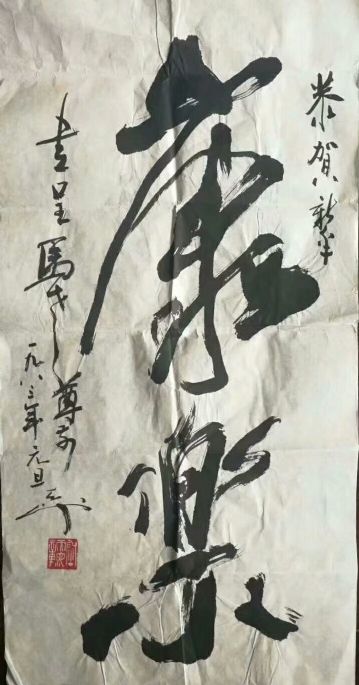 恭賀新年
康樂
書呈馬尊前
一九八三年元旦